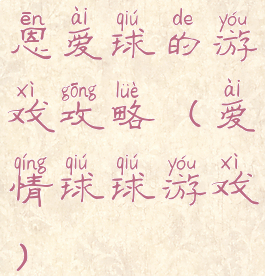 ēn ài qiú de yóu
恩爱球的游
xì gōng lüè ài
戏攻略(爱
qíng qiú qiú yóu xì
情球球游戏
)